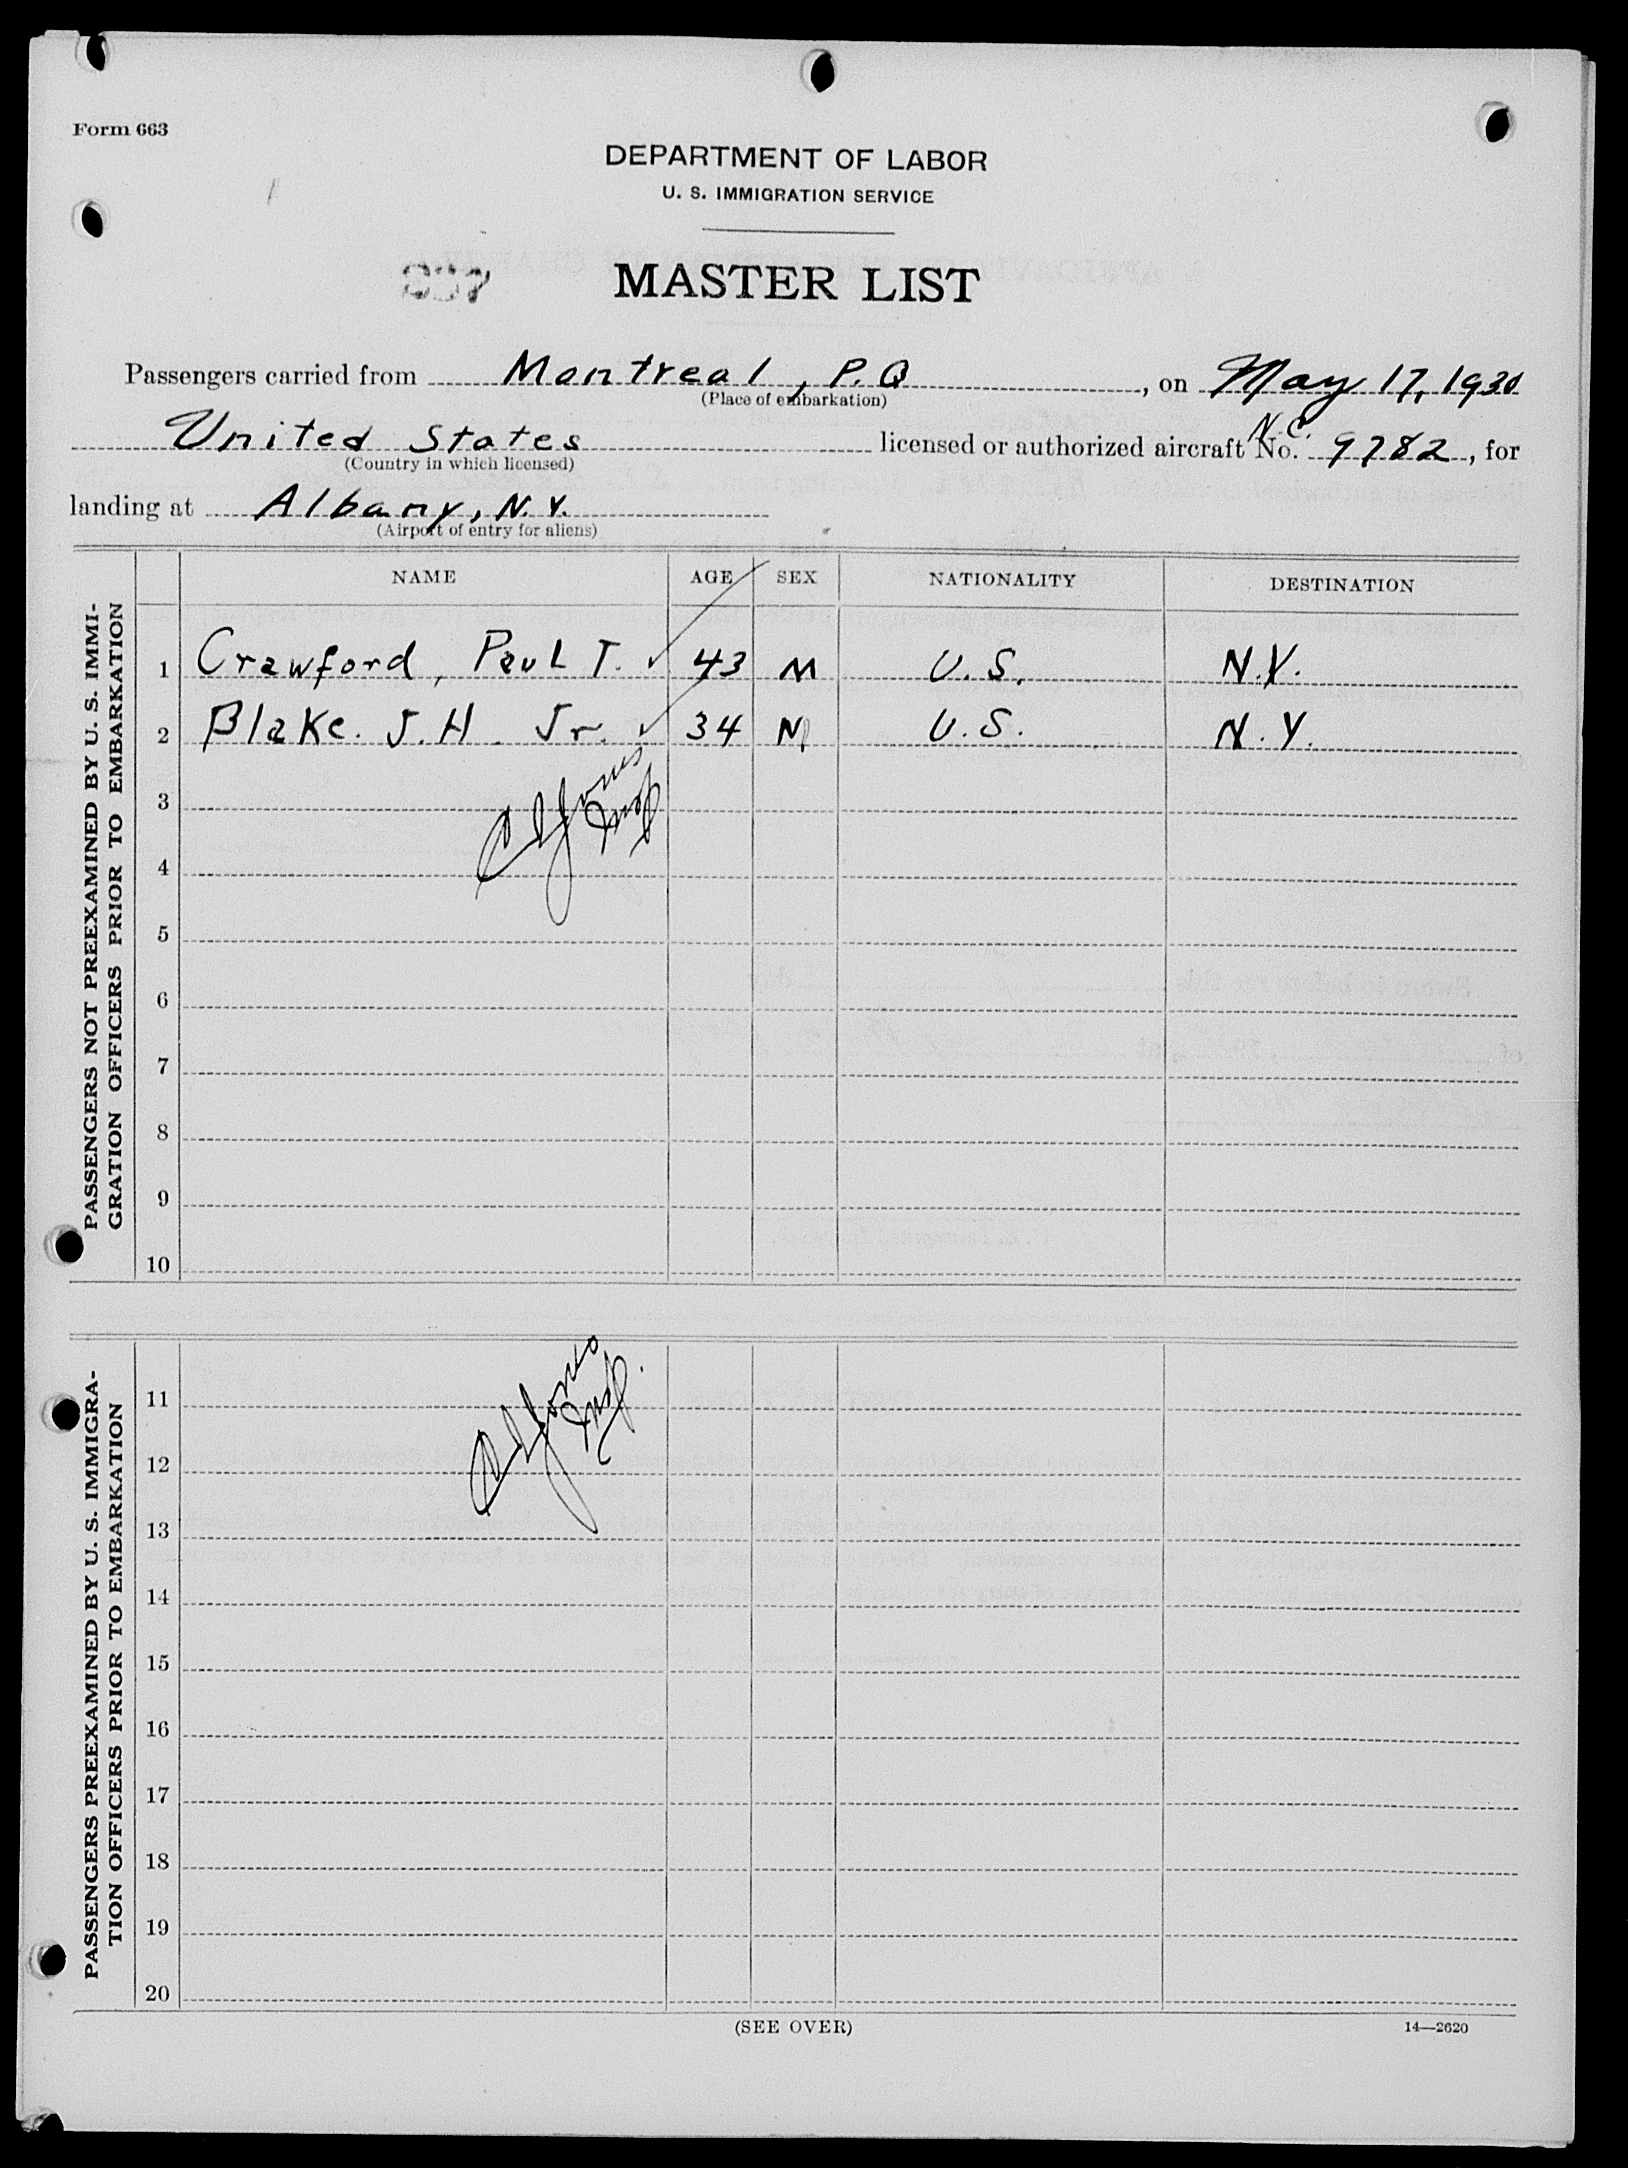 Form 663
DEPARTMENT OF LABOR
U. S. IMMIGRATION SERVICE
MASTER LIST
Passengers carried from Montreal, P.Q , on May 17, 1930
(Place of embarkation)
United States licensed or authorized aircraft N.C. No. 9782, for
(Country in which licensed)
landing at Albany, N.Y.
(Airport of entry for aliens)
NAME AGE SEX NATIONALITY DESTINATION
PASSENGERS NOT PREEXAMINED BY U. S. IMMI-
GRATION OFFICERS PRIOR TO EMBARKATION
1 Crawford, Paul T. ✓ 43 M U.S. N.Y.
2 Blake. J.H. Jr. ✓ 34 M U.S. N.Y.
3
Jones
Insp
4
5
6
7
8
9
10
PASSENGERS PREEXAMINED BY U. S. IMMIGRA-
TION OFFICERS PRIOR TO EMBARKATION
Jones
Insp.
11
12
13
14
15
16
17
18
19
20
(SEE OVER)
14—2620